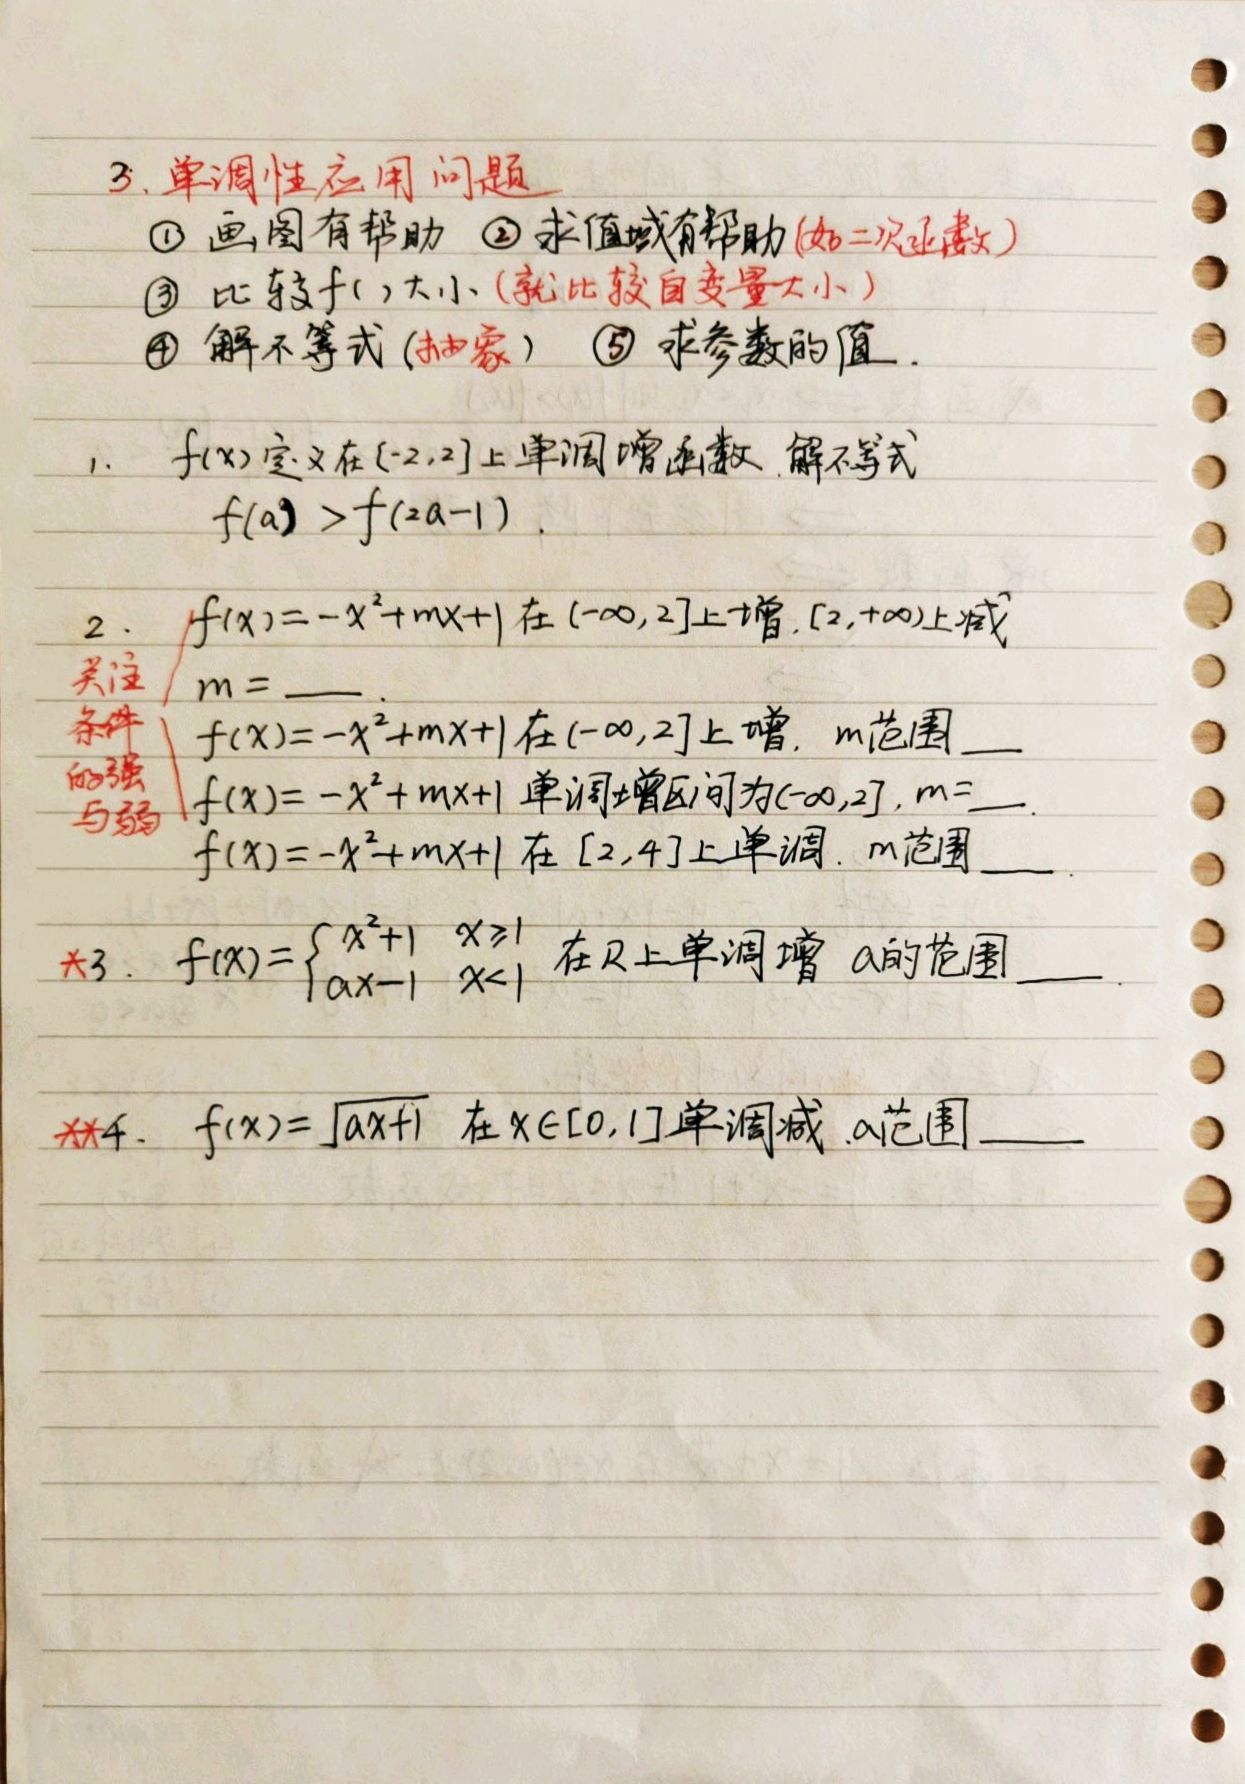 3. 单调性应用问题
① 画图有帮助 ② 求值域有帮助(如二次函数)
③ 比较f( )大小(就比较自变量大小)
④ 解不等式(抽象) ⑤ 求参数的值.
1. f(x)定义在[-2,2]上单调增函数.解不等式
f(a)>f(2a-1).
2. f(x)=-x²+mx+1在(-∞,2]上增.[2,+∞)上减
m=___.
关注条件的强与弱
f(x)=-x²+mx+1在(-∞,2]上增. m范围___
f(x)=-x²+mx+1 单调增区间为(-∞,2], m=___.
f(x)=-x²+mx+1在[2,4]上单调. m范围___.
*3. f(x)={x²+1 x≥1
ax-1 x<1 在R上单调增 a的范围___.
**4. f(x)=√ax+1 在x∈[0,1]单调减.a范围___